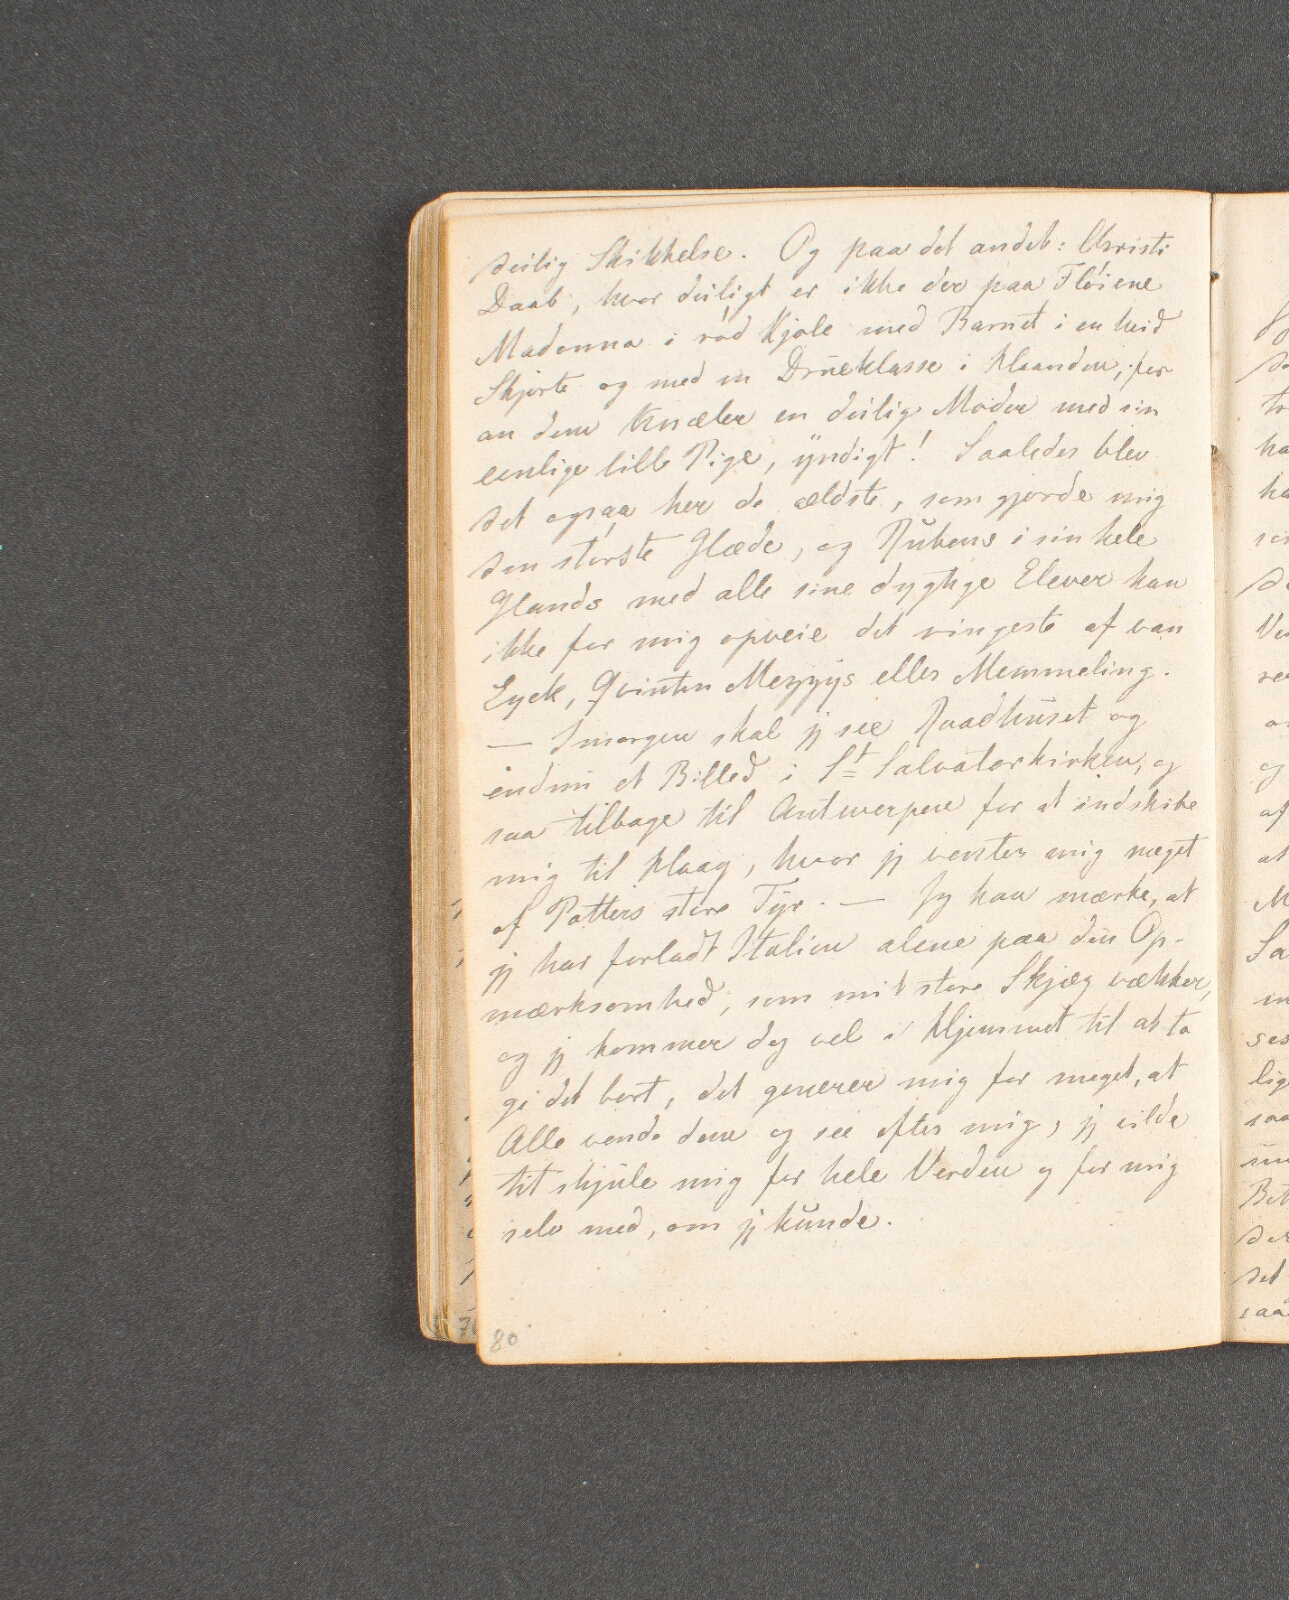 deilig Skikkelse. Og paa det andet: Christi
Daab, hvor deiligt er ikke der paa Fløiene
Madonna i rød Kjole med Barnet i en hvid
Skjorte og med en Drueklasse i Haanden, for
an dem knæler en deilig Moder med sin
eenlige lille Pige, yndigt! Saaledes blev
det ogsaa her de ældste, som gjorde mig
den største Glæde, og Rubens i sin hele
Glands med alle sine dygtige Elever kan
ikke for mig opveie det ringeste af van
Eyck, Qvinten Messys eller Memmeling.
— Imorgen skal jeg see Raadhuset og
endnu et Billed i St Salvatorkirken, og
saa tilbage til Antwerpen for at indskibe
mig til Haag, hvor jeg venter mig meget
af Potters store Tyr. — Jeg kan mærke, at
jeg har forladt Italien alene paa den Op-
mærksomhed, som mit store Skjæg vækker,
og jeg kommer dog vel i Hjemmet til at ta
ge det bort, det generer mig for meget, at
Alle vende dem og see efter mig, jeg vilde
tit skjule mig for hele Verden og for mig
selv med, om jeg kunde.
80